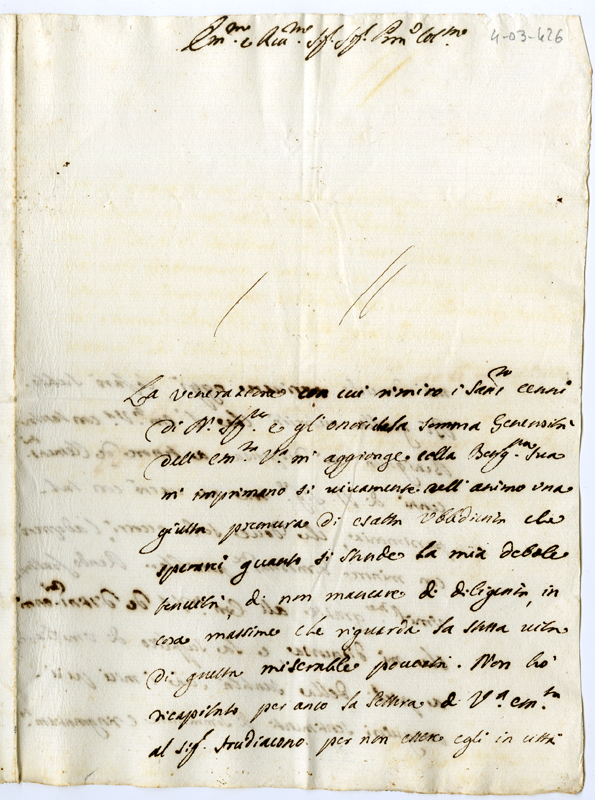 Em.mo e Rev.mo Sig.r Sig.r P.rone Col.mo
4-03-426
La venerazione con cui rimiro i San.mi cenni
di N.ro Sig.re e gl'onori che la somma Generosità
dell' Em.za V.ra mi aggionge colla sua
mi imprimano si vivamente nell'animo una
giusta premura di esatta Ubbidienza che
sperarei quanto si stende la mia debole
tenuità, di non mancare di diligenza, in
cosa massime che riguarda la stessa vita
di questa miserabile povertà. Non hò
ricapitato per anco la lettera di V.ra Em.za
al Sig.r Arcidiacono per non essere egli in città